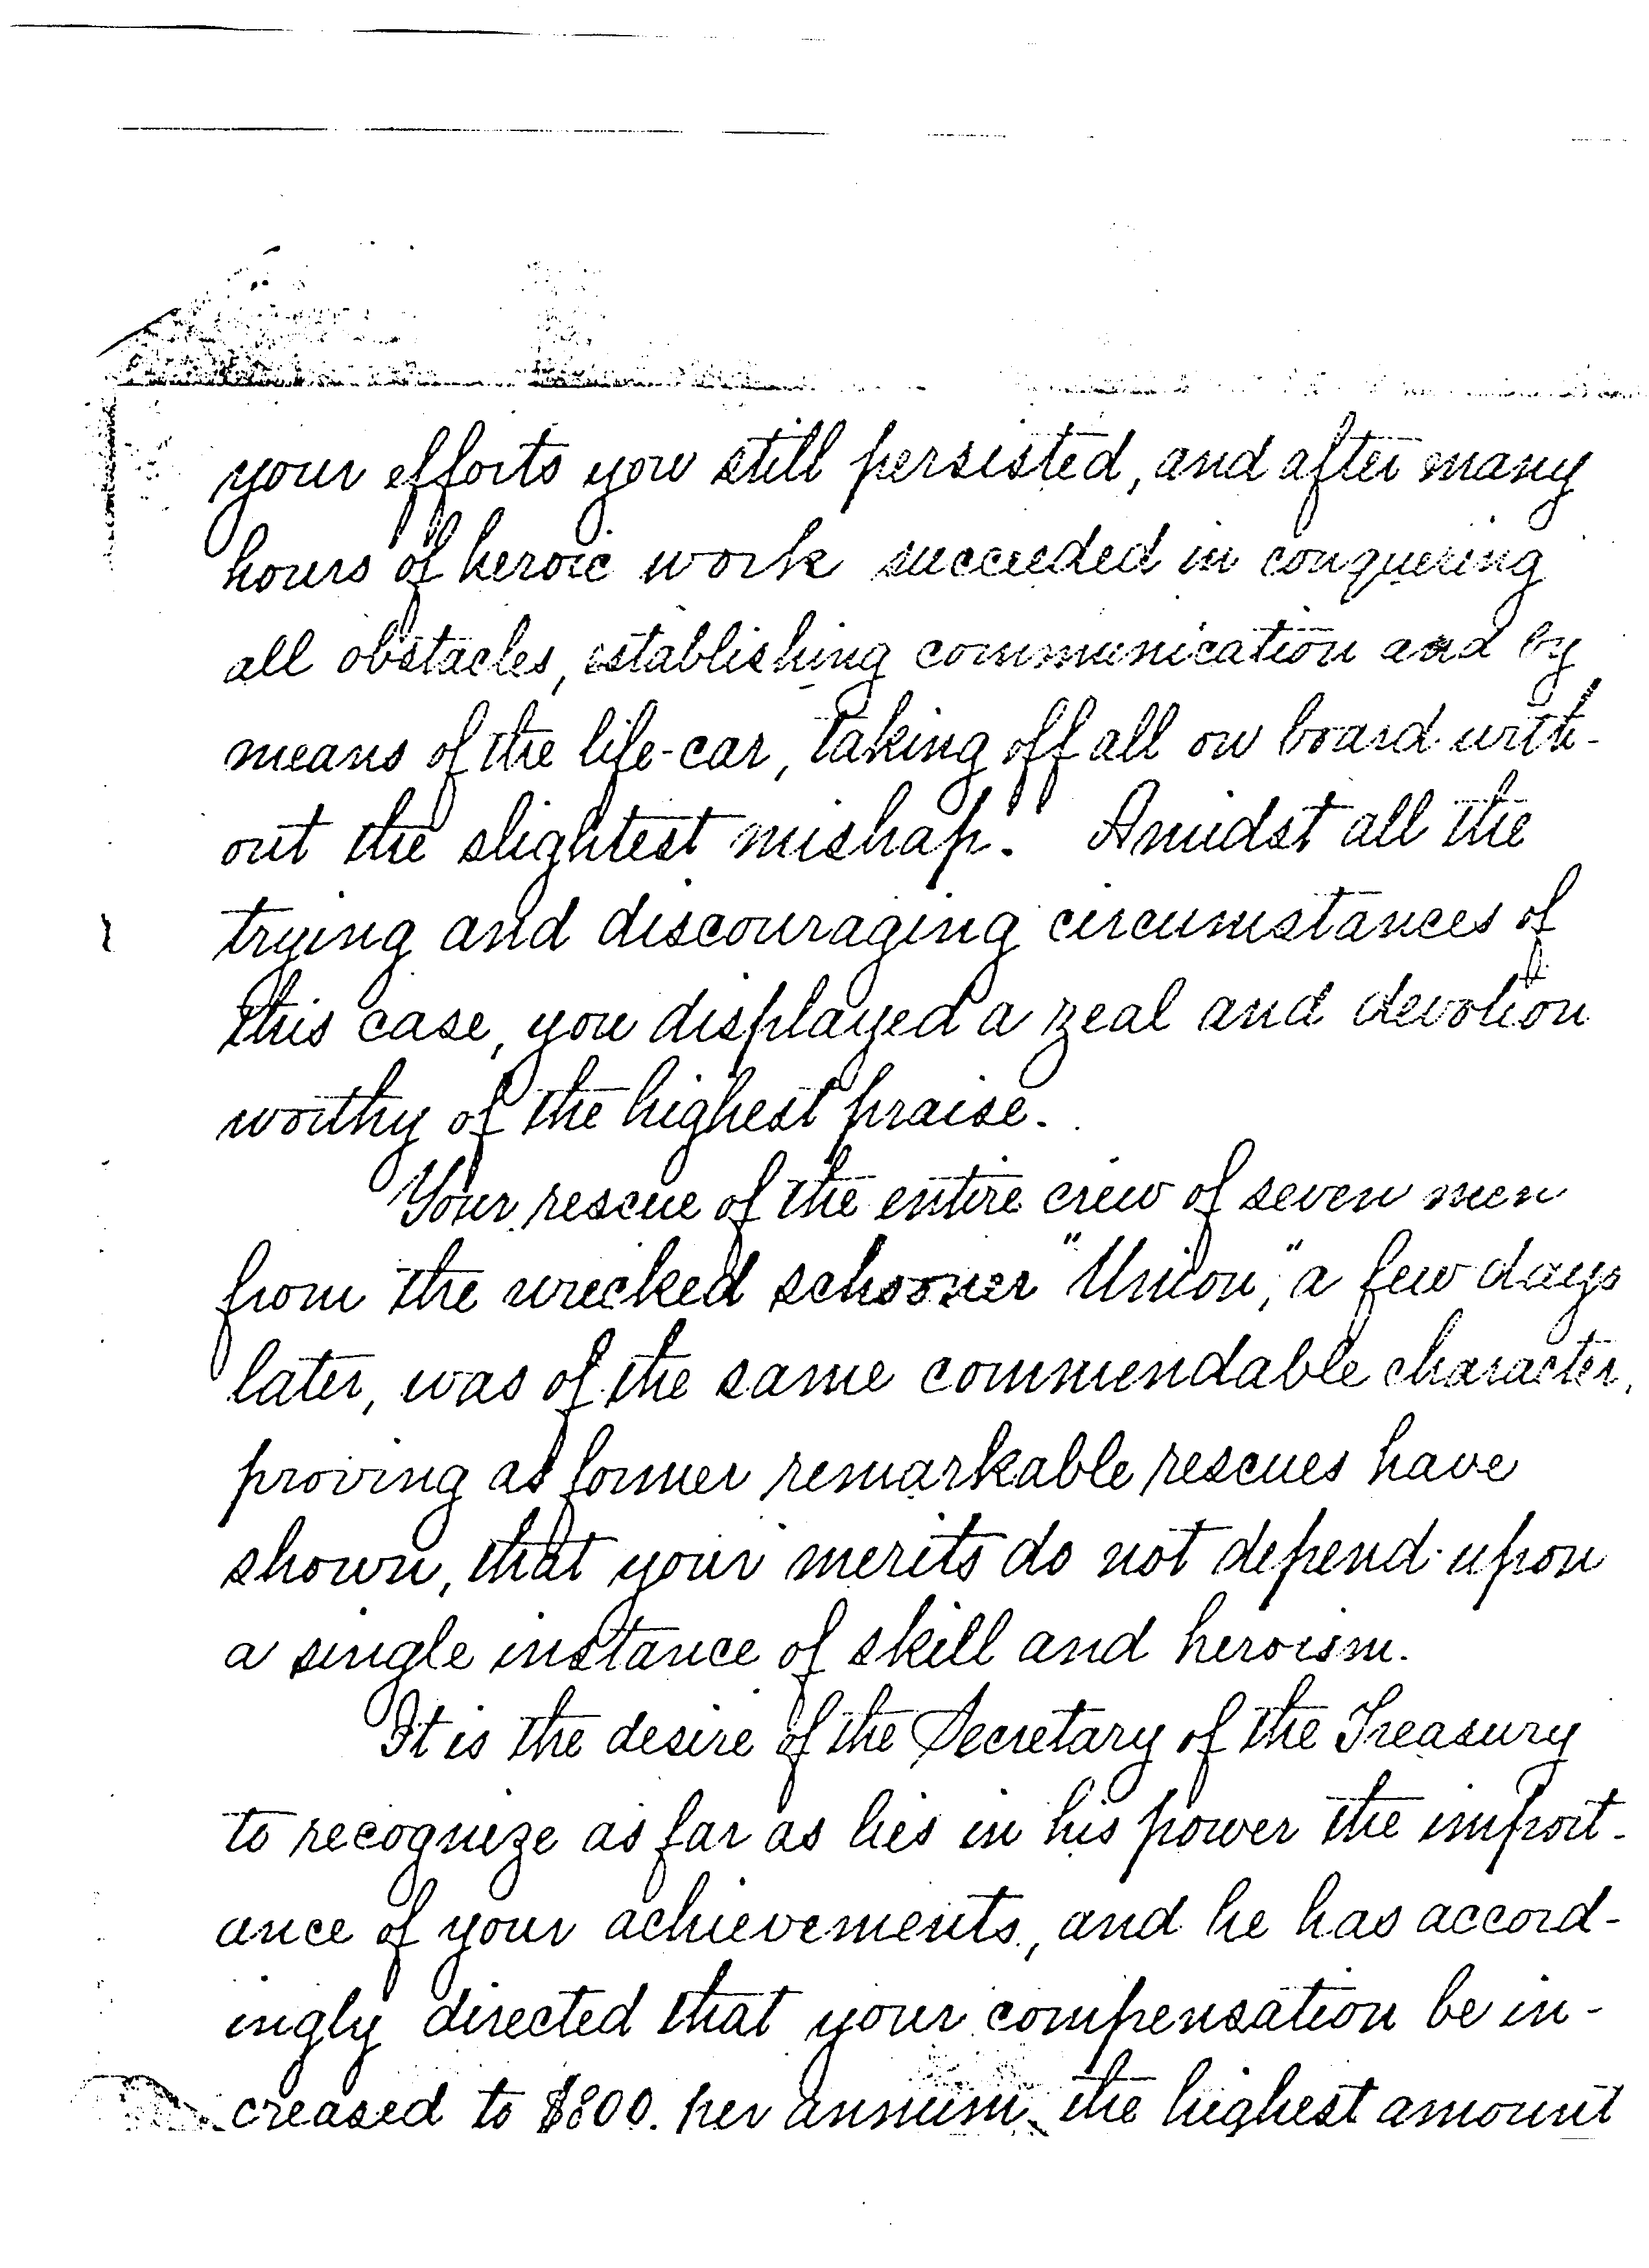 your efforts you still persisted, and after many
hours of heroic work succeeded in conquering
all obstacles, establishing communication and by
means of the life-car, taking off all on board with-
out the slightest mishap. Amidst all the
trying and discouraging circumstances of
this case, you displayed a zeal and devotion
worthy of the highest praise.
Your rescue of the entire crew of seven men
from the wrecked schooner "Union," a few days
later, was of the same commendable character,
proving as former remarkable rescues have
shown, that your merits do not depend upon
a single instance of skill and heroism.
It is the desire of the Secretary of the Treasury
to recognize as far as lies in his power the import-
ance of your achievements, and he has accord-
ingly directed that your compensation be in-
creased to $800. per annum, the highest amount